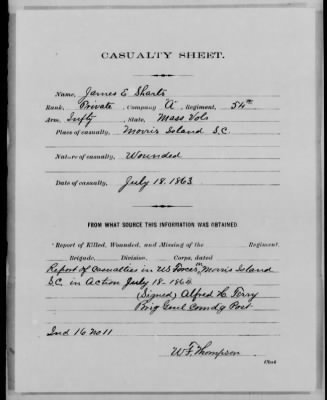 CASUALTY SHEET.
Name, James E Sharts
Rank, Private, Company A, Regiment, 54th
Arm, Infty, State, Mass Vols
Place of casualty, Morris Island S.C
Nature of casualty, Wounded
Date of casualty, July 18. 1863
FROM WHAT SOURCE THIS INFORMATION WAS OBTAINED.
Report of Killed, Wounded, and Missing of the Regiment,
Brigade, Division, Corps, dated
Report of Casualties in US Forces on Morris Island
S.C. in Action July 18-1863
(Signed) Alfred H. Terry
Brig Genl Comdg Post
Ind 16 No 11
W.F. Thompson,
Clerk